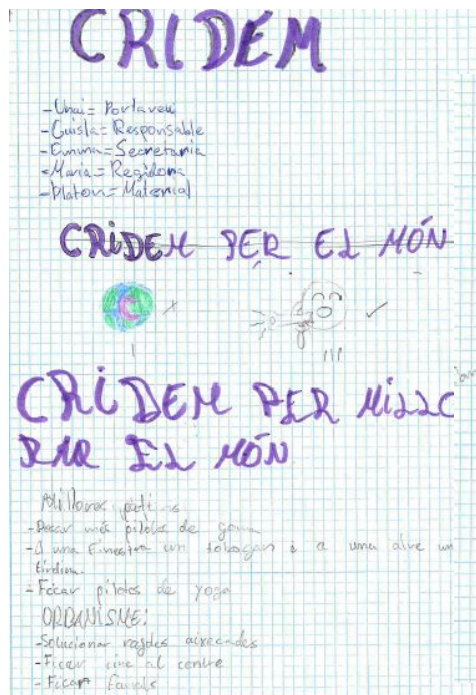 CRIDEM
-Unai= Portaveu
-Guisla= Responsable
-Emma= Secretaria
-Maria= Regidora
-Platon= Material
CRIDEM PER EL MÓN
CRIDEM PER MILLO
RAR EL MÓN
Millores patis
-Posar més pilotes de goma
-A una finestra un tobogan i a una altre un
tirolina.
-Ficar pilotes de yoga
ORGANISME:
-Solucionar rajoles aixecades
-Ficar cine al centre
-Ficar fanals